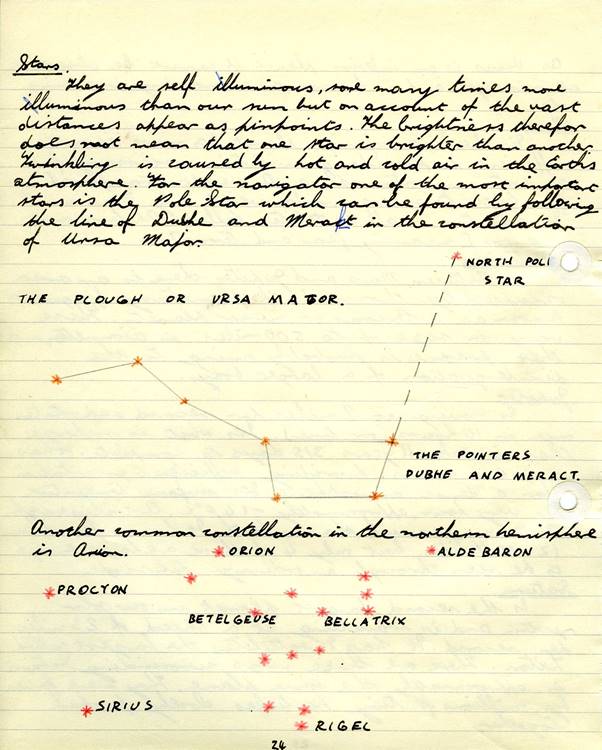 Stars.
They are self illuminous, some many times more
illuminous than our sun but on account of the vast
distances appear as pinpoints. The brightness therefor
does not mean that one star is brighter than another.
Twinkling is caused by hot and cold air in the Earths
atmosphere. For the navigator one of the most important
stars is the Pole Star which can be found by following
the line of Dubhe and Merakt in the constellation
of Ursa Major.
NORTH POLE
STAR
THE PLOUGH OR URSA MAJOR.
THE POINTERS
DUBHE AND MERACT.
Another common constellation in the northern hemisphere
is Orion.
ORION
ALDEBARON
PROCYON
BETELGEUSE
BELLATRIX
SIRIUS
RIGEL
24